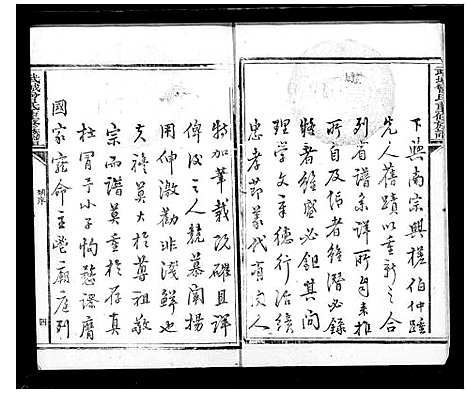 下與南宗興楼伯仲踵
先人舊蹟以重新之合
列省譜系詳所自來推
所自及后者雖潛必錄
特者雖盛必鉏其間
理学文章德行治績
忠孝節義代有文人
特加筆載既確且詳
俾後之人競慕闡揚
用伸激勸非淺鮮也
夫禮莫大於尊祖敬
宗而譜莫重於存真
杜冒予小子恂愁謬膺
國家寵命主鬯廟庭列
四